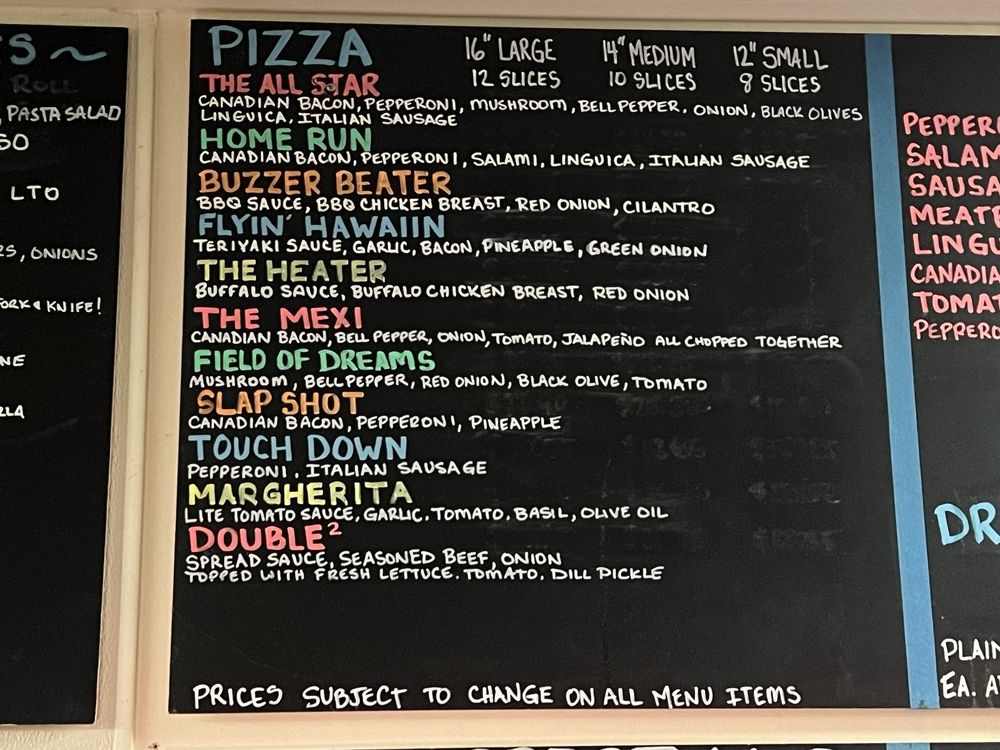 S ~
ROLL
, PASTA SALAD
LTO
, ONIONS
FORK & KNIFE!
PIZZA
16" LARGE 14" MEDIUM 12" SMALL
12 SLICES 10 SLICES 8 SLICES
THE ALL STAR
CANADIAN BACON, PEPPERONI, MUSHROOM, BELL PEPPER. ONION, BLACK OLIVES
LINGUICA. ITALIAN SAUSAGE
HOME RUN
CANADIAN BACON, PEPPERONI, SALAMI, LINGUICA, ITALIAN SAUSAGE
BUZZER BEATER
BBQ SAUCE, BBQ CHICKEN BREAST, RED ONION, CILANTRO
FLYIN' HAWAIIN
TERIYAKI SAUCE, GARLIC, BACON, PINEAPPLE, GREEN ONION
THE HEATER
BUFFALO SAUCE, BUFFALO CHICKEN BREAST, RED ONION
THE MEXI
CANADIAN BACON, BELL PEPPER, ONION, TOMATO, JALAPEÑO ALL CHOPPED TOGETHER
FIELD OF DREAMS
MUSHROOM, BELL PEPPER, RED ONION, BLACK OLIVE, TOMATO
SLAP SHOT
CANADIAN BACON, PEPPERONI, PINEAPPLE
TOUCH DOWN
PEPPERONI. ITALIAN SAUSAGE
MARGHERITA
LITE TOMATO SAUCE, GARLIC. TOMATO. BASIL, OLIVE OIL
DOUBLE²
SPREAD SAUCE, SEASONED BEEF, ONION
TOPPED WITH FRESH LETTUCE. TOMATO. DILL PICKLE
PRICES SUBJECT TO CHANGE ON ALL MENU ITEMS
PEPPER
SALAM
SAUSA
MEATB
LINGU
CANADIA
TOMAT
PEPPERO
DR
PLAIN
EA. A